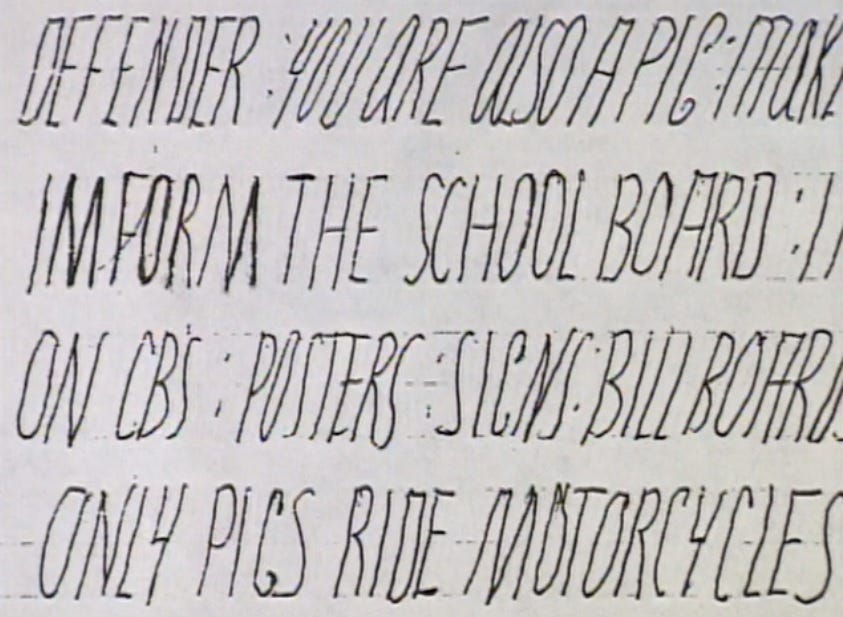 DEFENDER : YOU ARE alSO A PIG : MaKE
IMFORM THE SCHOOL BOARD :
ON CBS : POSTERS : SIGNS : BILLBOARDS
ONLY PIGS RIDE MOTORCYCLES